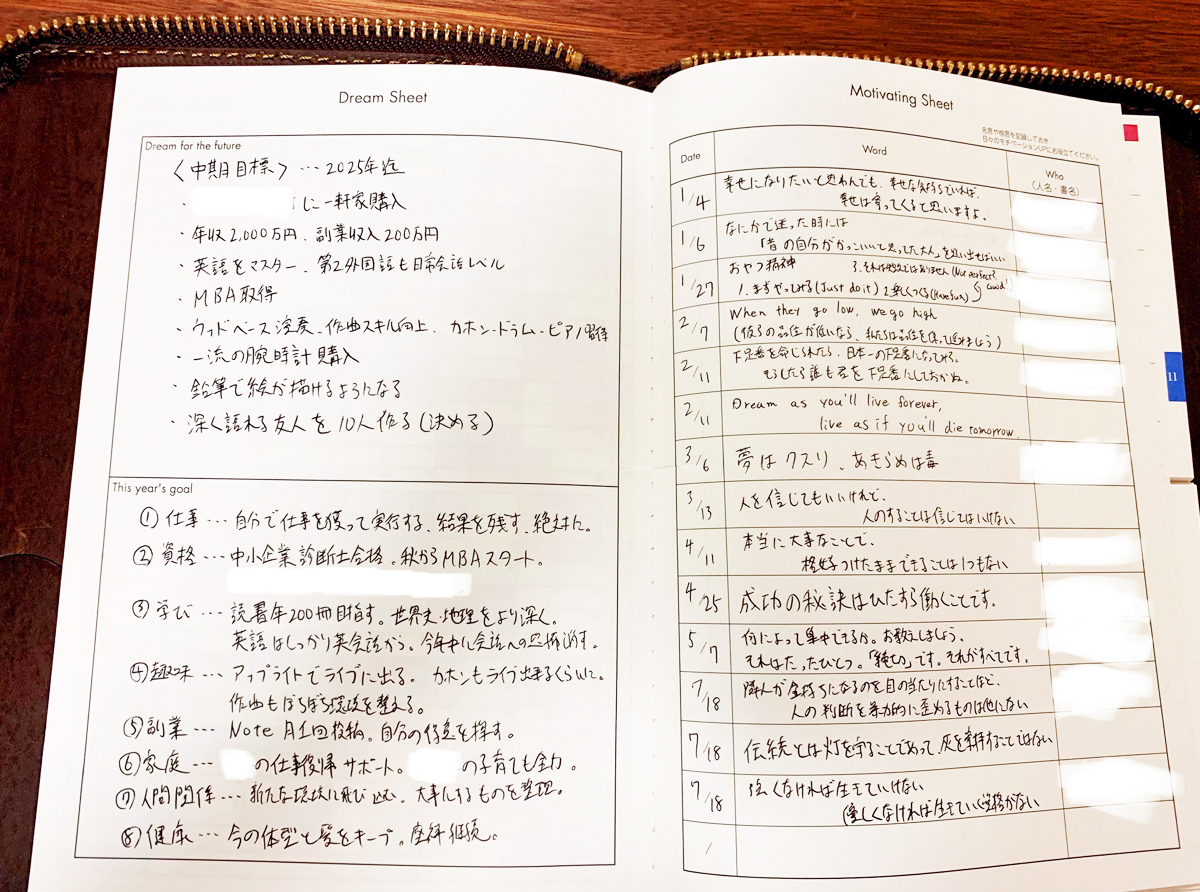 Dream Sheet
Dream for the future
〈中期目標〉…2025年迄
・ に一軒家購入
・年収2,000万円、副業収入200万円
・英語をマスター、第2外国語も日常会話レベル
・MBA取得
・ウッドベース深度、作曲スキル向上、カホン・ドラム・ピアノ習得
・一流の腕時計購入
・鉛筆で絵が描けるようになる
・深く語れる友人を10人作る(決める)
This year's goal
①仕事…自分で仕事を獲って実行する、結果を残す、絶対に。
②資格…中小企業診断士合格。秋からMBAスタート。
③学び…読書年200冊目指す。世界史・地理をより深く。
英語はしっかり英会話から。今年中に会話への恐怖消す。
④趣味…アップライトでライブに出る。カホンもライブ出来るくらいに。
作曲もぼちぼち環境を整える。
⑤副業…Note月1回投稿。自分の得意を探す。
⑥家庭… の仕事復帰サポート。 の子育ても全力。
⑦人間関係…新たな環境に飛び込む、大事にするものを整理。
⑧健康…今の体型と髪をキープ。座禅継続。
Motivating Sheet
名言や格言を記録しておき
日々のモチベーションUPにお役立てください。
Date Word Who
(人名・書名)
1/4 幸せになりたいと思わんでも、幸せな気持ちでいれば、
幸せは寄ってくると思いますよ。
1/6 なにかで迷った時には
「昔の自分がかっこいいと思ってた大人」を思い出せばいい
1/27 おやつ精神 3.それは失敗ではありません(Not perfect? Good!)
1.まずやってみる(Just do it) 2.楽しくつくる(Have fun)
2/7 When they go low, we go high
(彼らの品位が低いなら、私たちは品位を保って進みましょう)
2/11 下足番を命じられたら、日本一の下足番になってみろ。
そうしたら誰も君を下足番にしておかぬ。
2/11 Dream as you'll live forever,
live as if you'll die tomorrow.
3/6 夢はクスリ、あきらめは毒
3/13 人を信じてもいいけれど、
人のすることは信じてはいけない
4/11 本当に大事なことで、
格好つけたままできることは1つもない
4/25 成功の秘訣はひたすら働くことです。
5/7 何によって集中できるか。お教えしましょう。
それはたったひとつ。「締切」です。それがすべてです。
7/18 隣人が金持ちになるのを目の当たりにすることほど、
人の判断を暴力的に歪めるものは他にない
7/18 伝統とは灯を守ることであって、灰を崇拝することではない
7/18 強くなければ生きていけない
優しくなければ生きていく資格がない
/
11